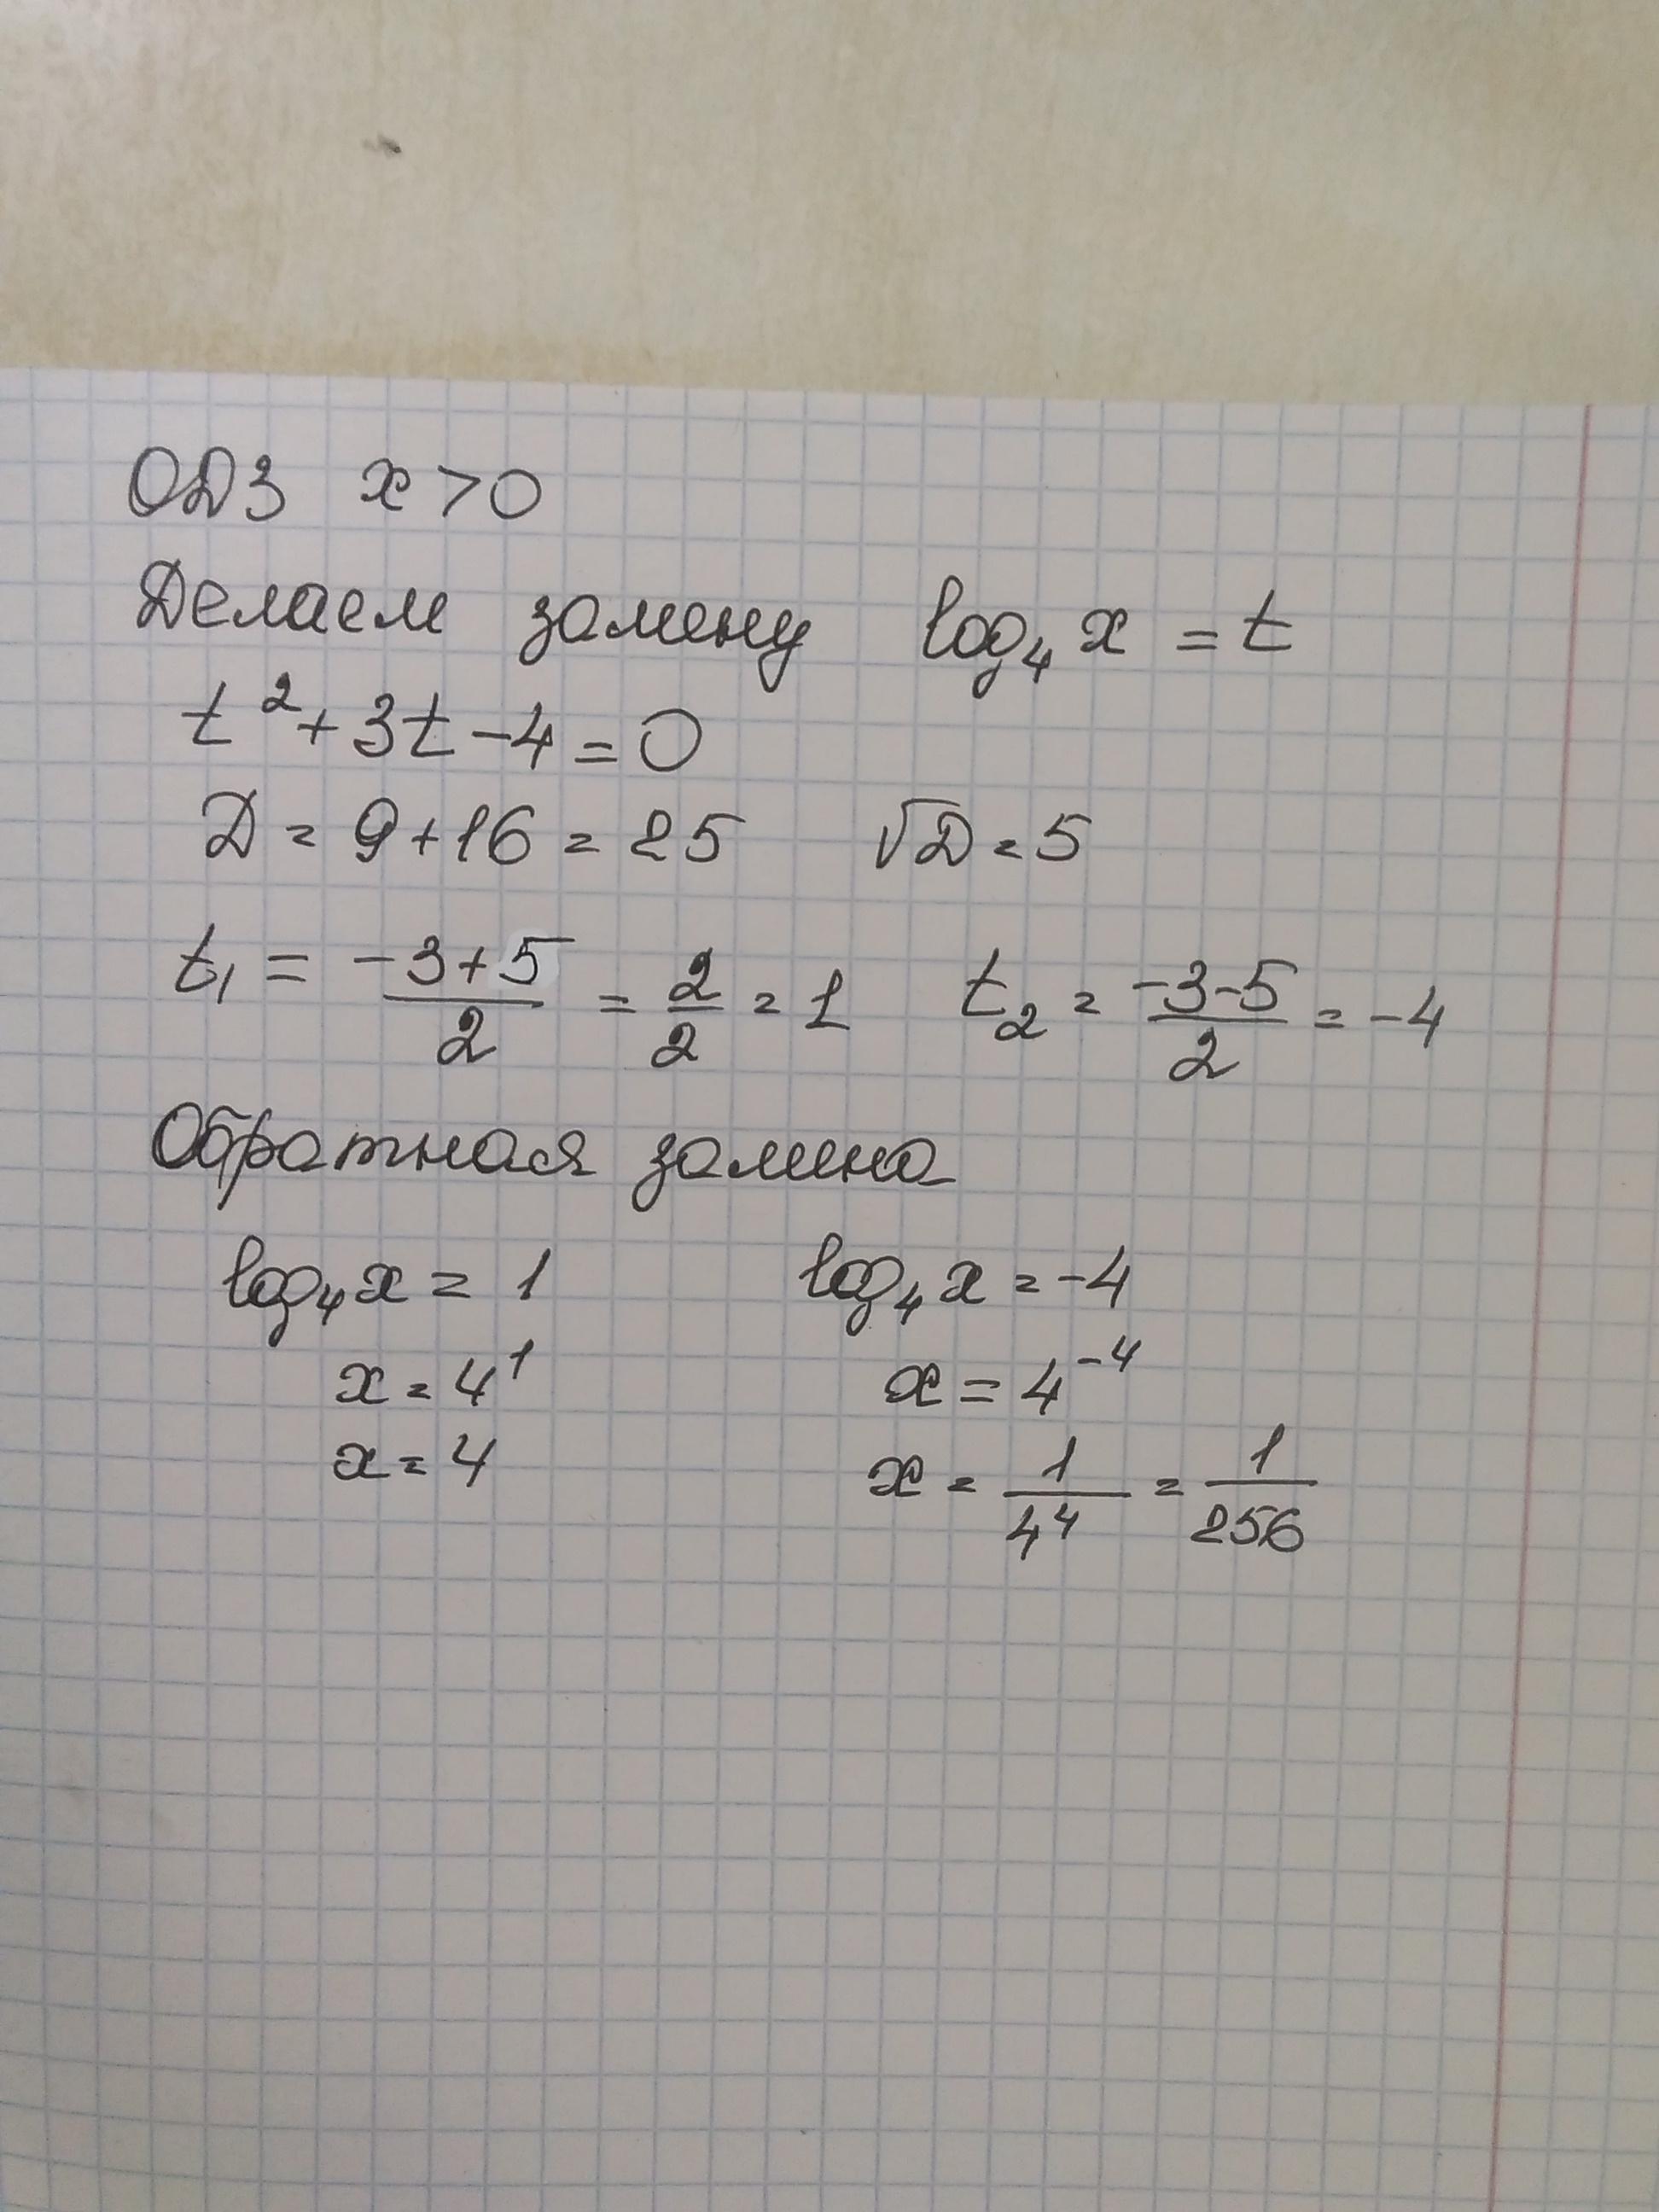 ОДЗ x > 0
Делаем замену log₄ x = t
t² + 3t - 4 = 0
D = 9 + 16 = 25 √D = 5
t₁ = (-3+5)/2 = 2/2 = 1 t₂ = (-3-5)/2 = -4
Обратная замена
log₄ x = 1 log₄ x = -4
x = 4¹ x = 4⁻⁴
x = 4 x = 1/4⁴ = 1/256